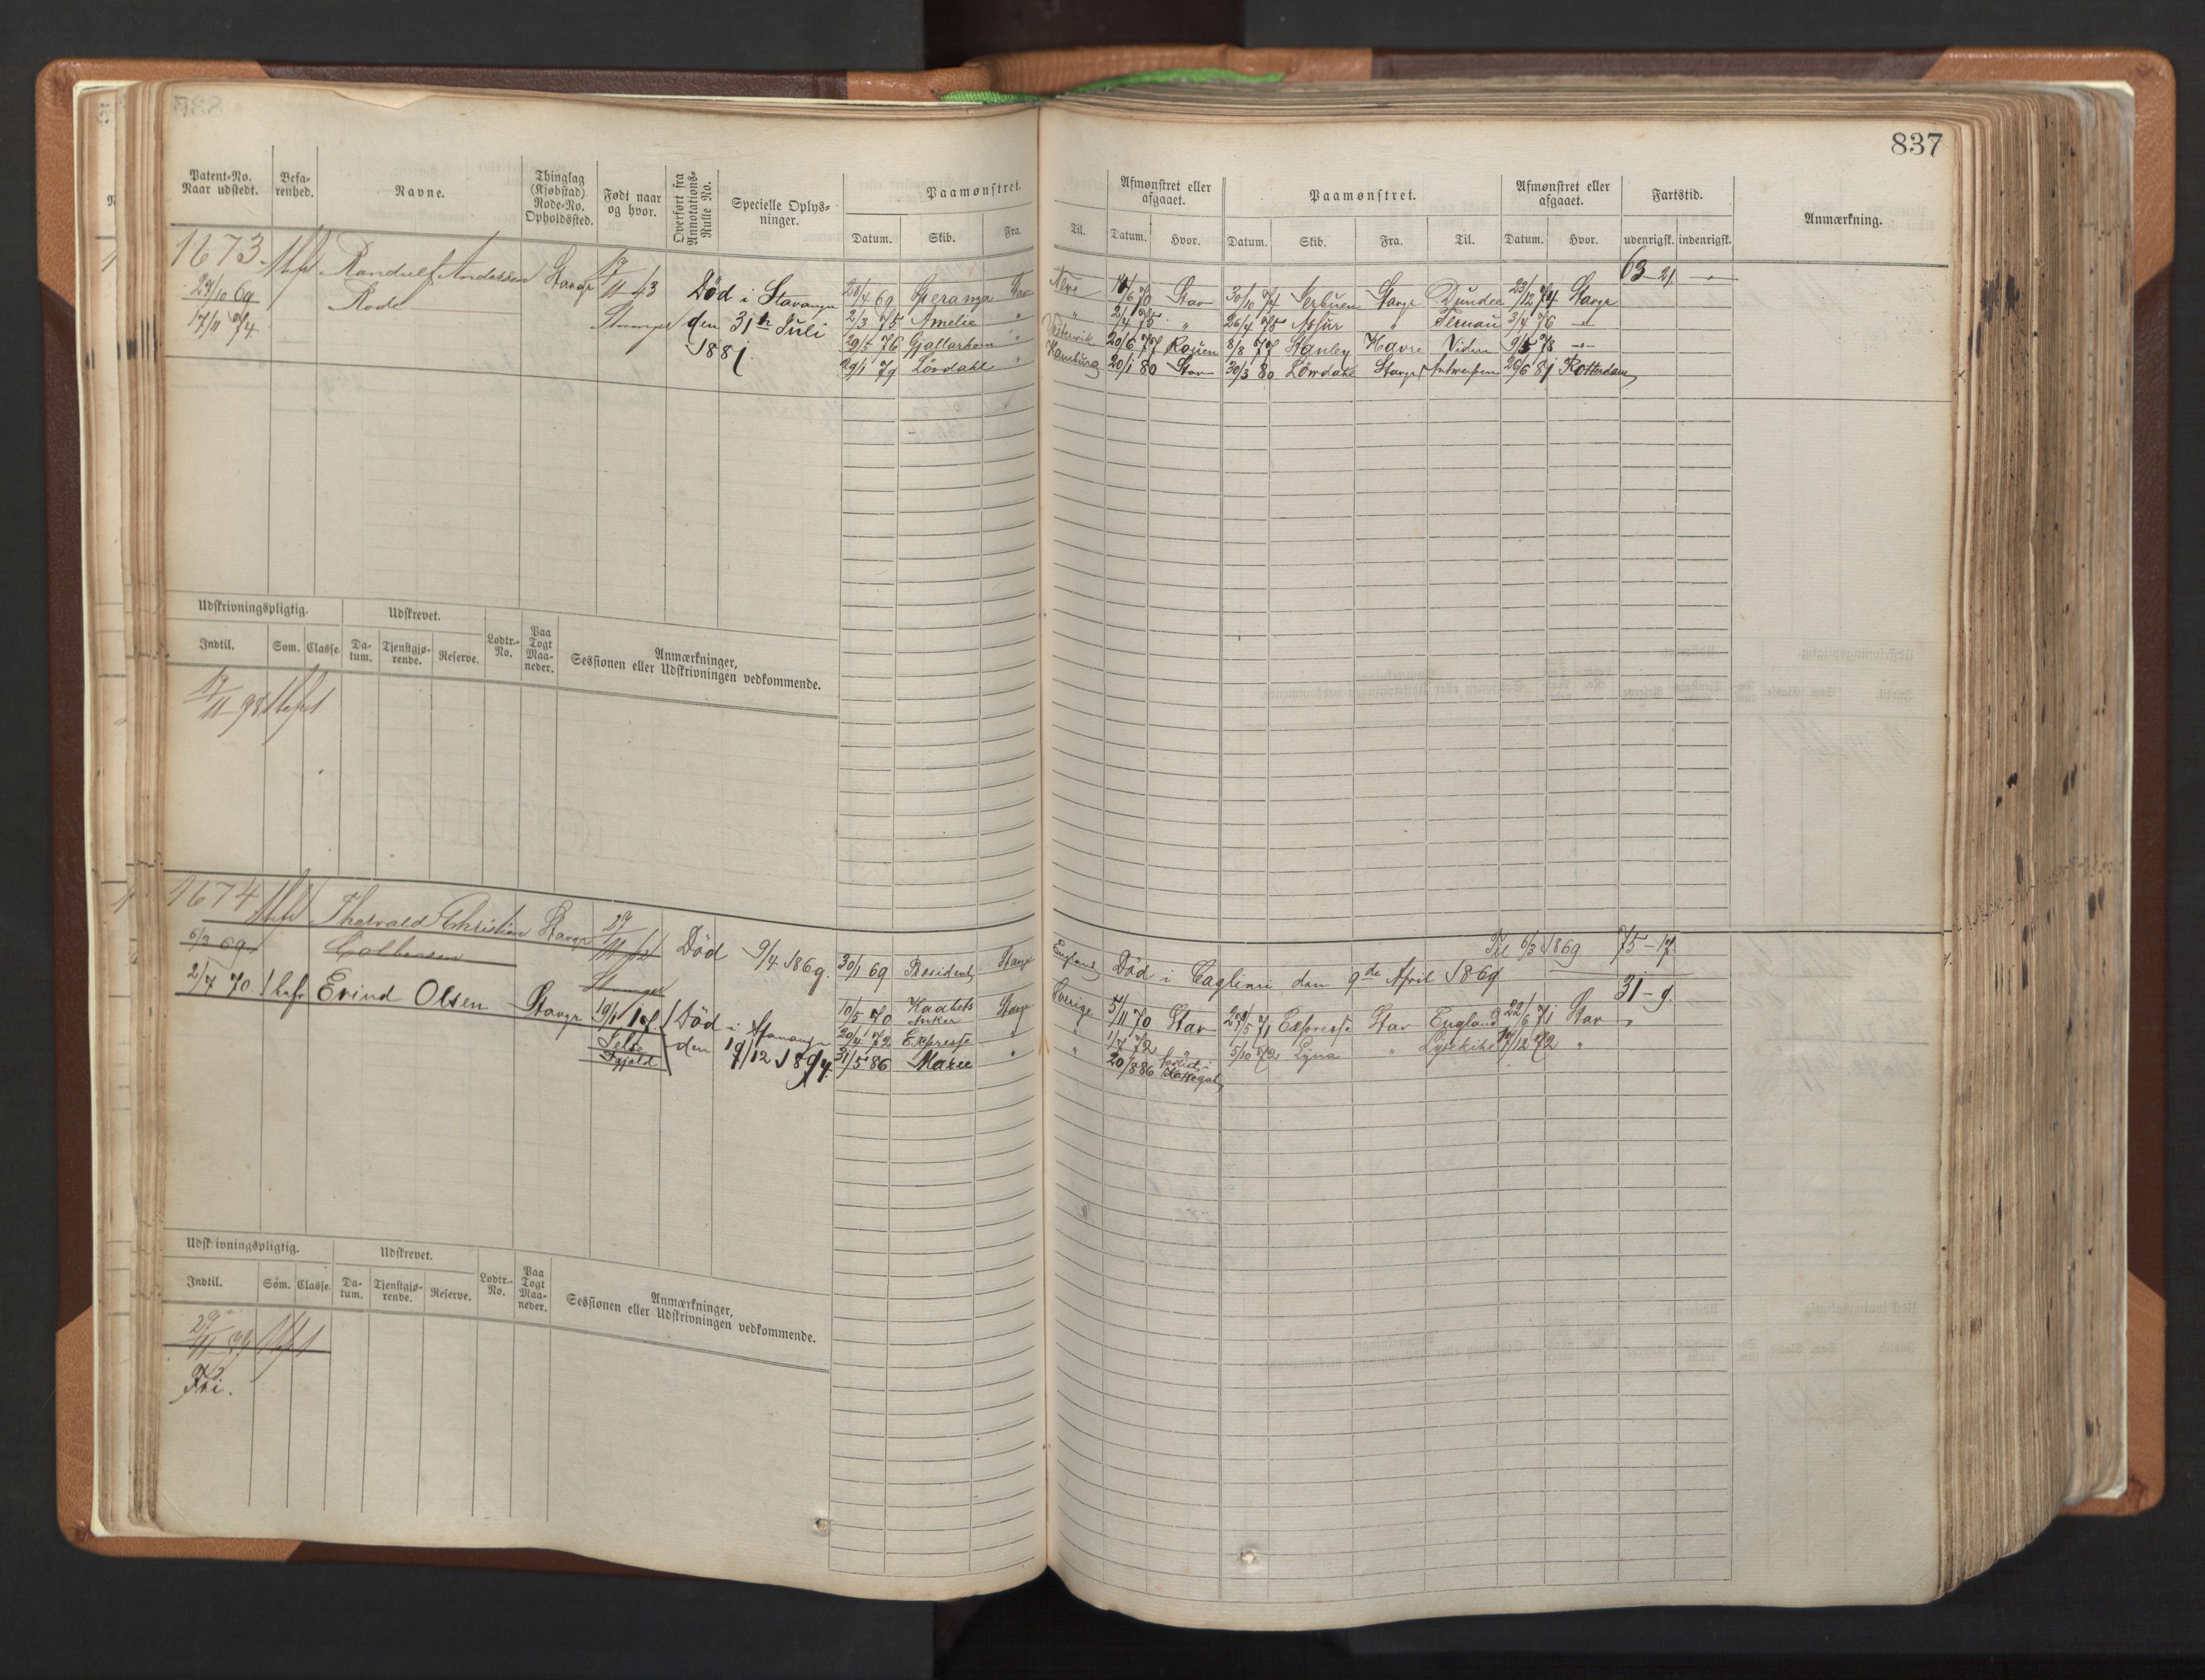 837
Patent-No. Naar udstedt.
Befarenhed.
Navne.
Thinglag (Kjøbstad) Rode-No. Opholdssted.
Født naar og hvor.
Overført fra Annotations-Rulle No.
Specielle Oplysninger.
Paamønstret.
Datum. Skib. Fra. Til.
Afmønstret eller afgaaet.
Datum. Hvor.
Paamønstret.
Datum. Skib. Fra. Til.
Afmønstret eller afgaaet.
Datum. Hvor.
Fartstid.
udenrigsk. indenrigsk.
Anmærkning.
1673 Randulf Andersen Stavgr 17/11 43 63-21
27/10 69 Rode Stavanger
17/11 74
Død i Stavanger
den 31te Juli
1881.
28/4 69 Stav 70 Stav 30/10 74 Stavgr Dundee 23/12 74 Stavgr
2/3 75 Amelie " " 2/4 75 " 26/4 75 Assur " 3/4 76 -"-
29/5 76 Gjallarhorn " 20/6 77 Rouen 8/8 77 Stanley Havre 78 -"-
29/1 79 Lövdahl " Hamburg 20/1 80 Stav 30/3 80 Lövdahl Stavgr Antwerpen 26/6 81 Rotterdam
Udskrivningspligtig.
Indtil. Som. Classe.
Udskrevet.
Datum. Tjenstgjørende. Reserve.
Lodtr.-No.
Paa Togt Maaneder.
Anmærkninger, Sessionen eller Udskrivningen vedkommende.
17/11 98
1674 Thorvald Christian Stavgr 29/11
6/3 69
Død 9/4 1869.
30/1 69 President Stavgr England Død i den 9de April 1869
Til 6/3 1869 75-17
2/7 70 1 Evind Olsen Stavgr 19/1 31-9
Død i Stavanger
den 19/12 1894
10/5 70 Haabets Anker Stavgr Sverige 5/11 70 Stav 71 Expresse Stav England 22/6 71 Stav
29/4 72 Expresse " 1/7 72 " 5/10 72 " Lysekihl 12 72 "
31/5 86 Marie " " 20/8 86 forlist
Udskrivningspligtig.
Indtil. Som. Classe.
Udskrevet.
Datum. Tjenstgjørende. Reserve.
Lodtr.-No.
Paa Togt Maaneder.
Anmærkninger, Sessionen eller Udskrivningen vedkommende.
29/11
Fri.